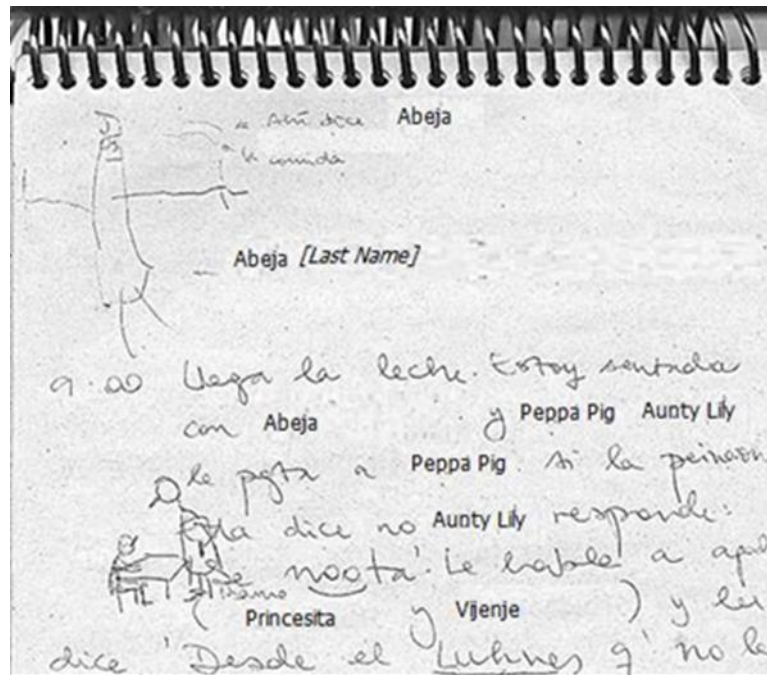 Acá dice Abeja
la comida
Abeja [Last Name]
9:00 Llega la leche. Estoy sentada
con Abeja y Peppa Pig Aunty Lily
le pgta a Peppa Pig si la peinaron
dice no Aunty Lily responde:
Se noota'. Le habla a
( Princesita y Vijenje ) y les
dice 'Desde el Luhnes q' no la